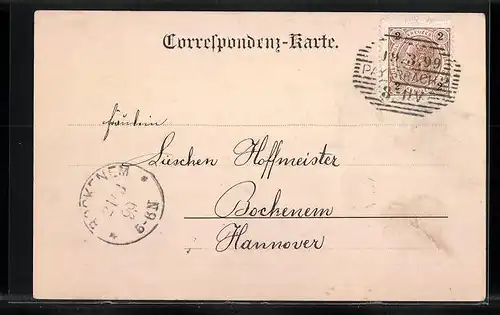 Correspondenz-Karte.
2 2
19.3.99
PAYERBACH
8-11V
2 2
Fräulein
Lieschen Hoffmeister
Bockenem
Hannover
BOCKENEM
8-9N